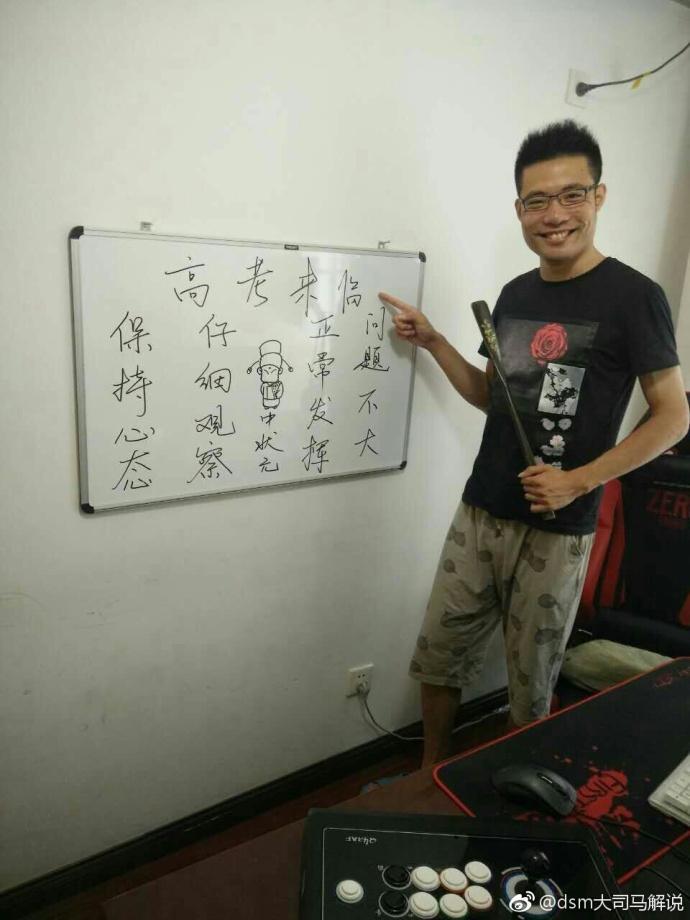 高考来临
保持心态
仔细观察
中状元
正常发挥
问题不大
ZER
FIRST
QANBA
@dsm大司马解说